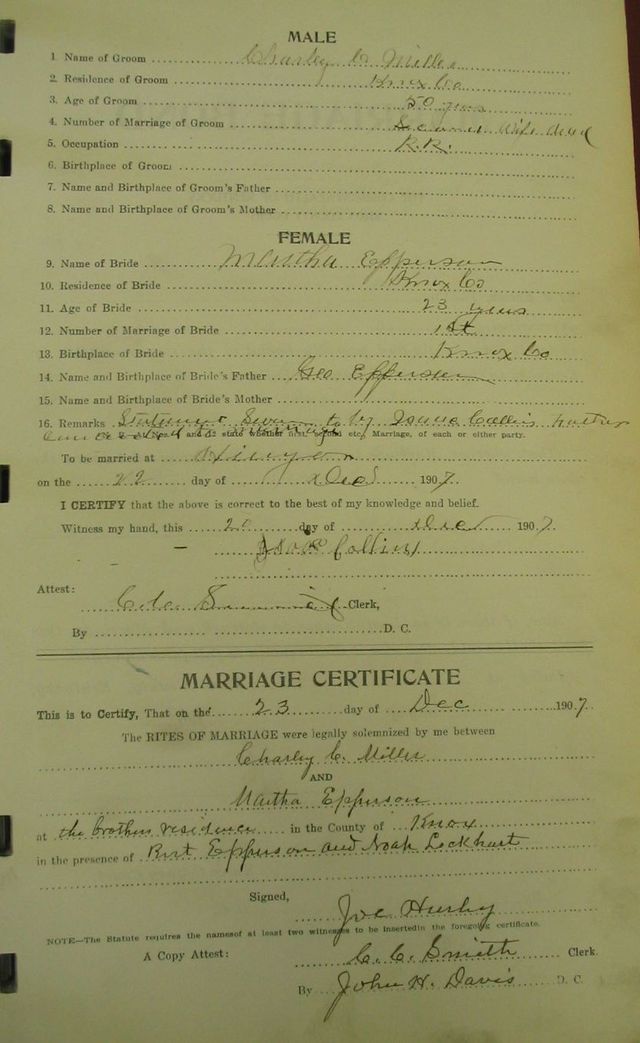 MALE
1. Name of Groom Charley C. Miller
2. Residence of Groom Knox Co
3. Age of Groom 50 years
4. Number of Marriage of Groom Second wife dead
5. Occupation R.R.
6. Birthplace of Groom
7. Name and Birthplace of Groom's Father
8. Name and Birthplace of Groom's Mother
FEMALE
9. Name of Bride Martha Epperson
10. Residence of Bride Knox Co
11. Age of Bride 23 years
12. Number of Marriage of Bride 1st
13. Birthplace of Bride Knox Co
14. Name and Birthplace of Bride's Father Geo Epperson
15. Name and Birthplace of Bride's Mother
16. Remarks Statement Sworn to by
state whether first, second etc., Marriage, of each or either party.
To be married at
on the 22 day of Dec 1907.
I CERTIFY that the above is correct to the best of my knowledge and belief.
Witness my hand, this 20 day of Dec 1907.
Collins
Attest:
Clerk,
By D. C.
MARRIAGE CERTIFICATE
This is to Certify, That on the 23 day of Dec 1907.
The RITES OF MARRIAGE were legally solemnized by me between
Charley C. Miller
AND
Martha Epperson
at the brothers residence in the County of Knox
in the presence of Burt Epperson and Noah Lockhart
Signed,
Joe
NOTE—The Statute requires the namesof at least two witnesses to be insertedin the foregoing certificate.
A Copy Attest: C. C. Smith Clerk
By John H. Davis D. C.